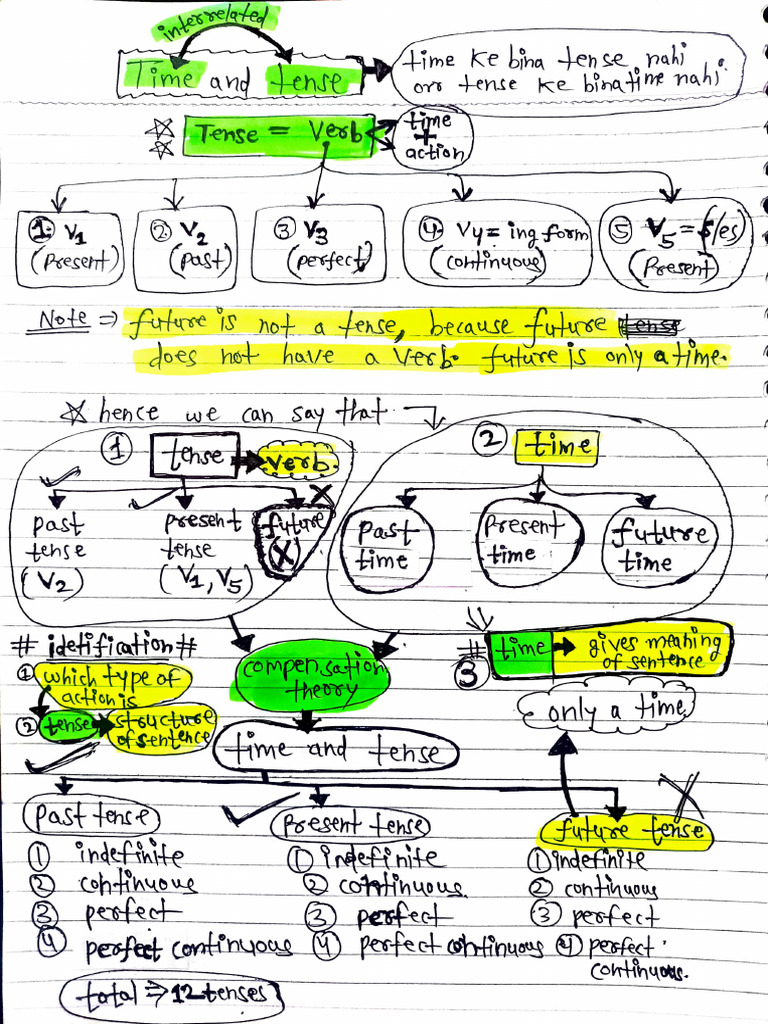 interrelated
Time and tense
time ke bina tense nahi
orr tense ke bina time nahi.
Tense = Verb
time
+
action
1. V1
(present)
2. V2
(past)
3 V3
(perfect)
4. V4 = ing form
(continuous)
5 V5 = s/es
(Present)
Note ⇒ future is not a tense, because future
does not have a verb. future is only a time.
hence we can say that
1 tense → verb.
past
tense
(V2)
present
tense
(V1, V5)
future
(X)
2 time
past
time
present
time
future
time
# idetification #
1 which type of
action is
2 tense → structure
of sentence
compensation
theory
# 3 time → gives meaning
of sentence
only a time
time and tense
past tense
1 indefinite
2 continuous
3 perfect
4 perfect continuous
present tense
1 indefinite
2 continuous.
3 perfect
4 perfect continuous
future tense
1 indefinite
2 continuous
3 perfect
4 perfect
continuous.
total ⇒ 12 tenses